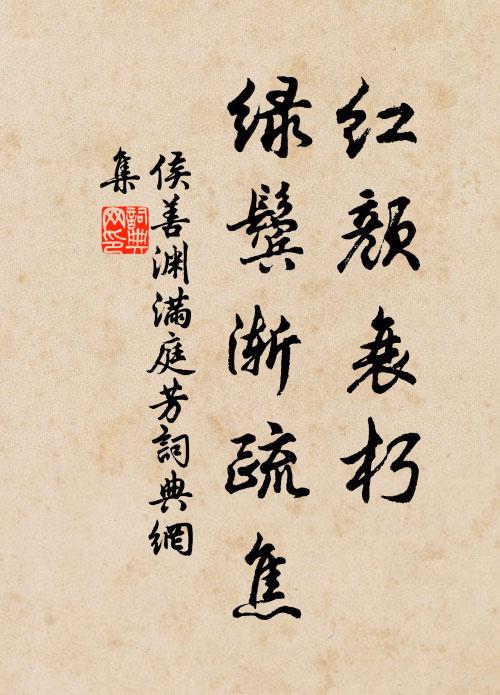 红颜衰朽
绿鬓渐疏焦
侯善渊满庭芳詞典網
集
詞典
网印